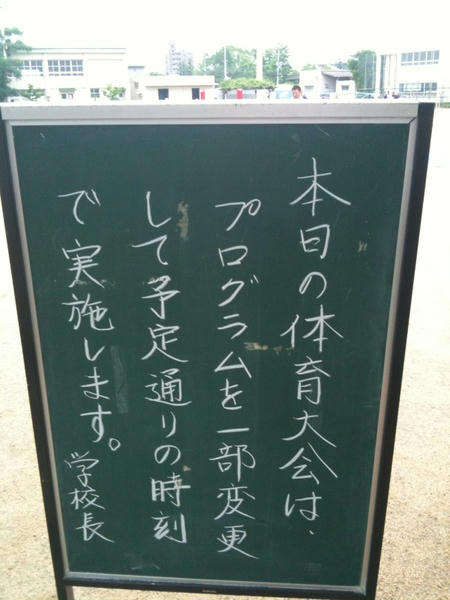 本日の体育大会は、
プログラムを一部変更
して予定通りの時刻
で実施します。
学校長